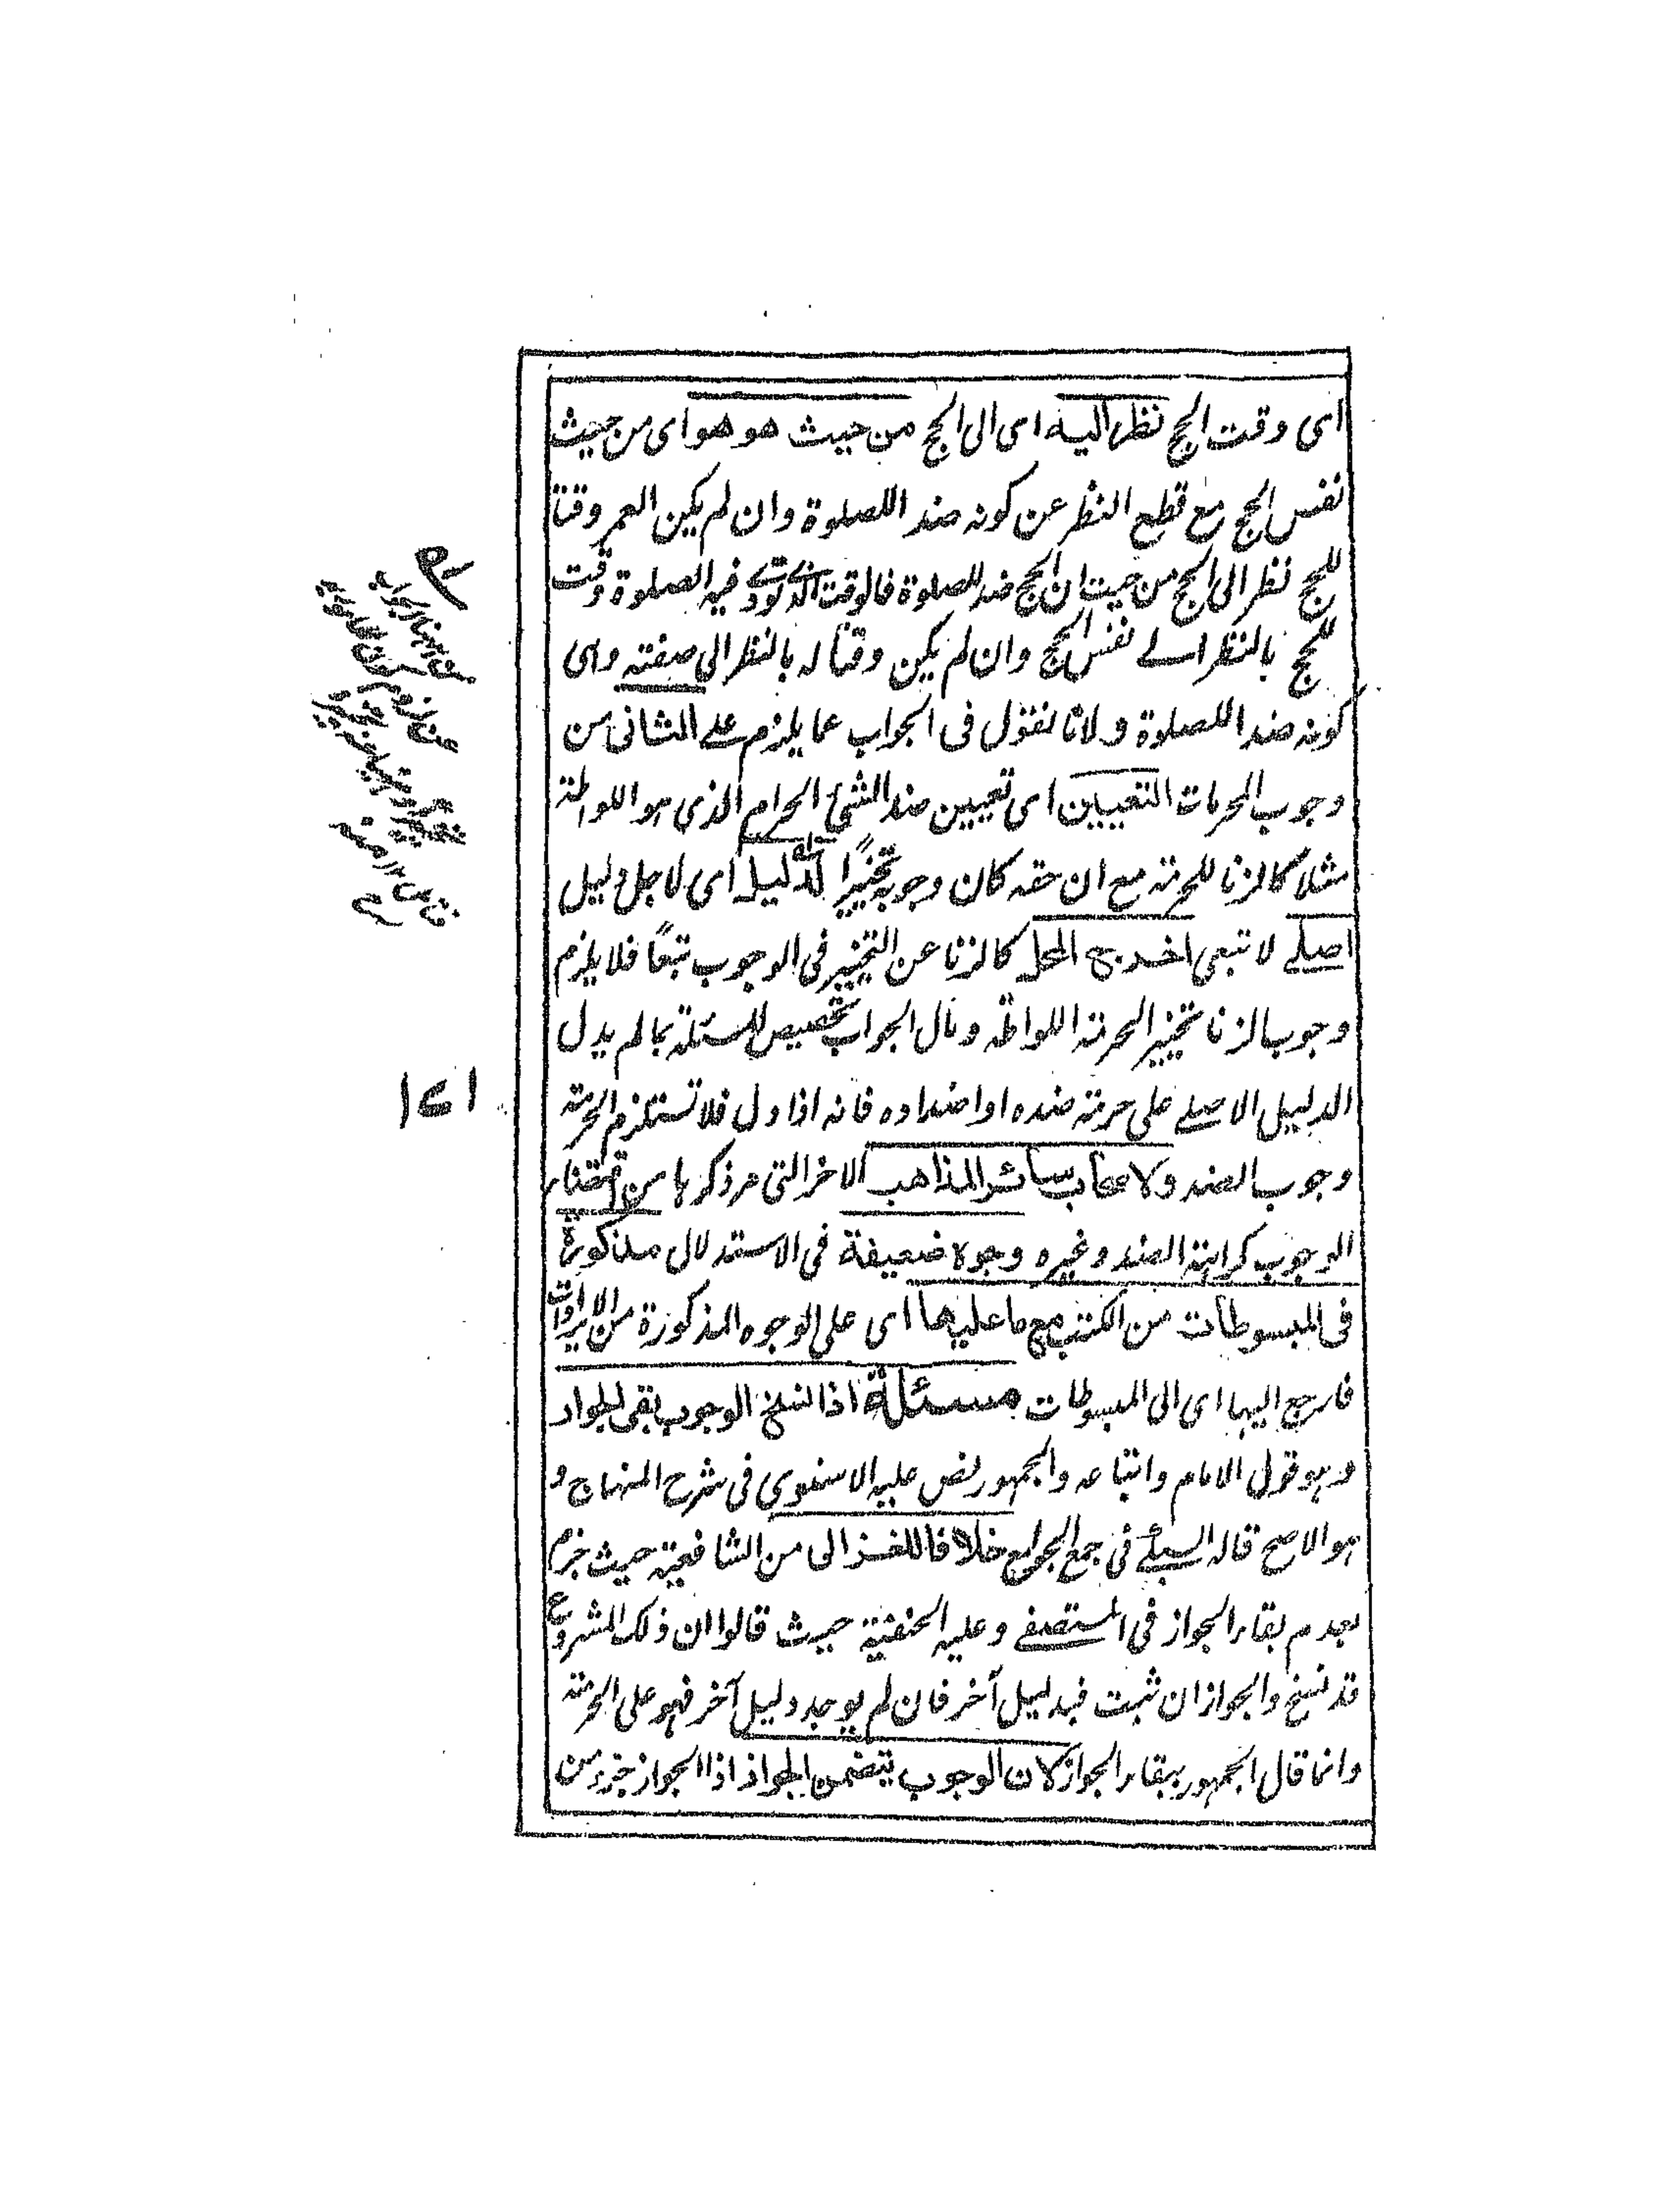 اى وقت الحج نظرا اليه اى الى الحج من حيث هو هو اى من حيث
نفس الحج مع قطع النظر عن كونه ضدا للصلوة وان لم يكن العمر وقتا
للحج نظرا الى الحج من حيث ان الحج ضد للصلوة فالوقت الذى تودى فيه الصلوة وقت
للحج بالنظر الے نفس الحج وان لم يكن وقتا له بالنظر الى صفته واى
كونه ضدا للصلوة ولانا نقول فى الجواب عما يلزم على الثانى من
وجوب المحرمات التعيين اى تعيين ضد الشئ الحرام الذى هو اللواطة
مثلا كالزنا للحرمة مع ان حقه كان وجوبه تخييرا لدليل اى لاجل دليل
اصلے لا تبعى اخرج المحل كالزنا عن التخيير فى الوجوب تبعًا فلا يلزم
وجوب الزنا تخيير الحرمة اللواطة ومال الجواب تخصيص المسئلة بما لم يدل
الدليل الاصلے على حرمة ضده او اضداده فانه اذا دل فلا تستلزم الحرمة
وجوب الضد ولاصحاب سائر المذاهب الاخر التى مر ذكرها من اقتضاء
الوجوب كراهة الضد وغيره وجوه ضعيفة فى الاستدلال مذكورة
فى المبسوطات من الكتب مع ما عليها اى على الوجوه المذكورة من الايرادات
فارجع اليها اى الى المبسوطات مسئلة اذا نسخ الوجوب بقى الجواز
وهو قول الامام واتباعه والجمهور نص عليه الاسنوى فى شرح المنهاج و
هو الاصح قاله السبكے فى جمع الجوامع خلافا للغزالى من الشافعية حيث جزم
بعدم بقاء الجواز فى المستصفے وعليه الحنفية حيث قالوا ان ذلك المشروع
قد نسخ والجواز ان ثبت فبدليل آخر فان لم يوجد دليل آخر فهو على الحرمة
وانما قال الجمهور ببقاء الجواز لان الوجوب يتضمن الجواز اذ الجواز جزء من
١٧١